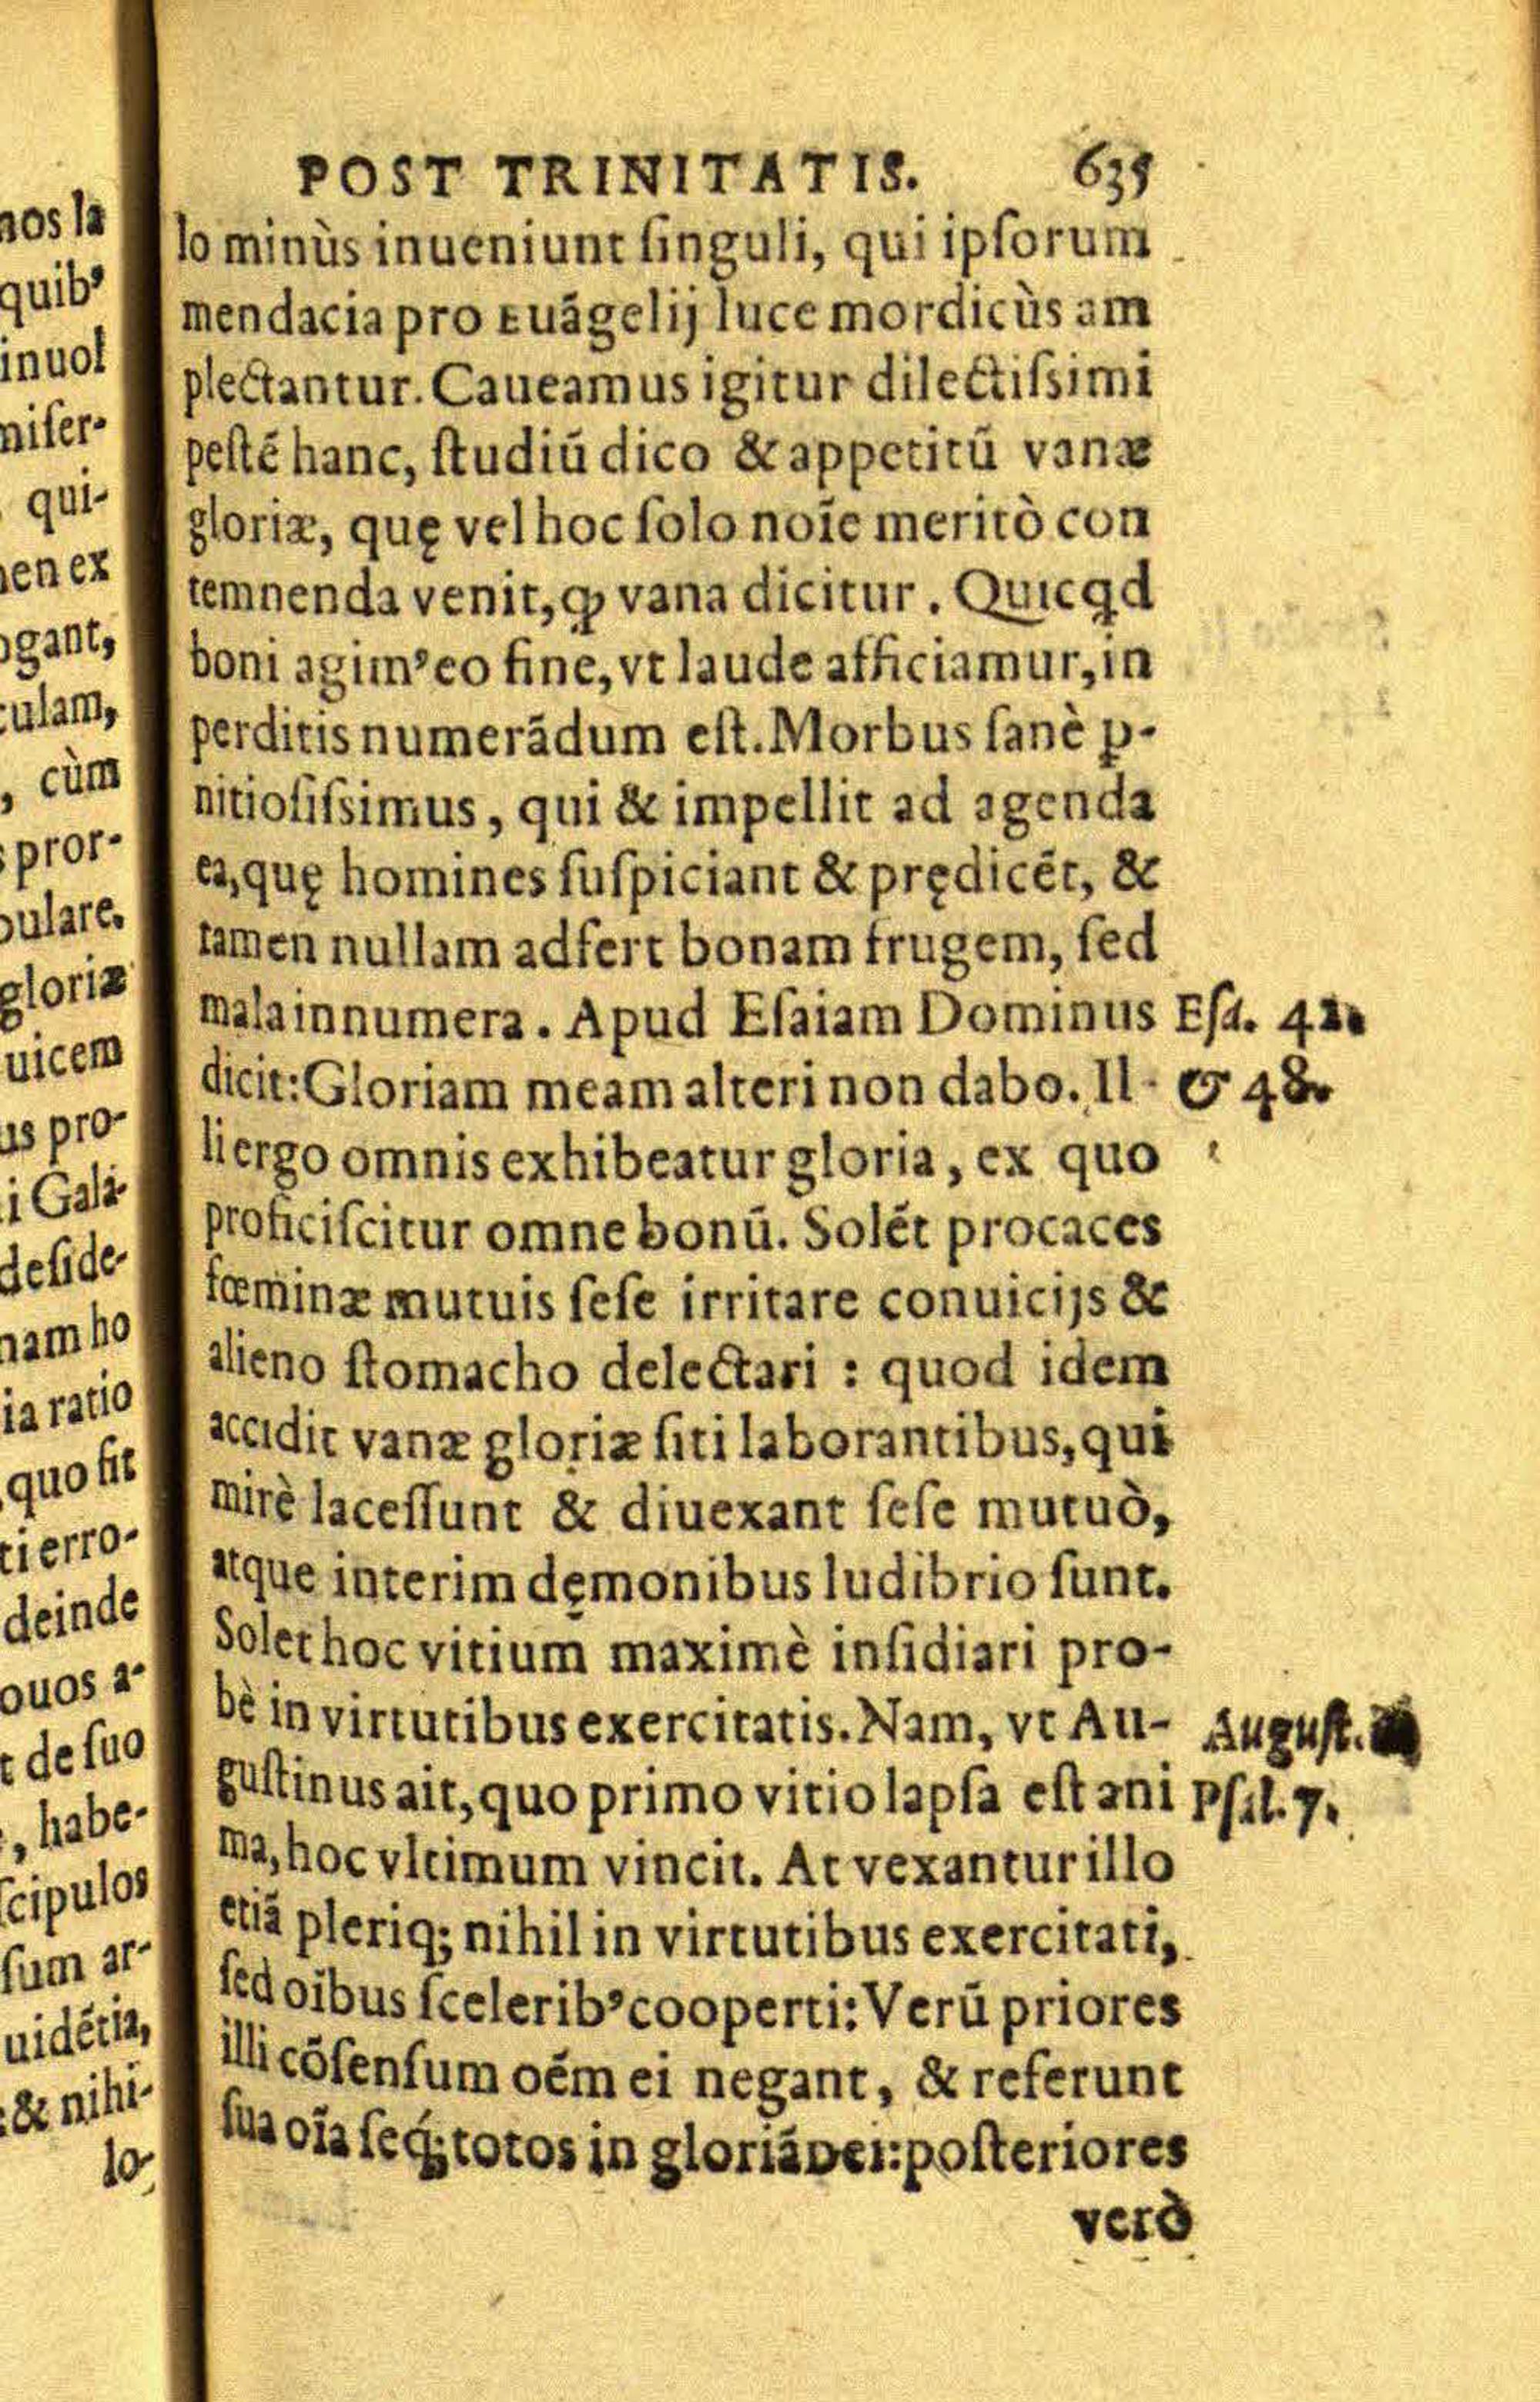 POST TRINITATIS. 635
lo minùs inueniunt ſinguli, qui ipſorum
mendacia pro Euãgelij luce mordicùs am
plectantur. Caueamus igitur dilectiſsimi
peſtẽ hanc, ſtudiũ dico & appetitũ vanæ
gloriæ, quę vel hoc ſolo noĩe meritò con
temnenda venit, ꝙ vana dicitur. Quicqd
boni agimꝰ eo fine, vt laude afficiamur, in
perditis numerãdum eſt. Morbus ſanè ꝑ-
nitioſiſsimus, qui & impellit ad agenda
ea, quę homines ſuſpiciant & prędicẽt, &
tamen nullam adfert bonam frugem, ſed
mala innumera. Apud Eſaiam Dominus
Eſa. 42.
dicit: Gloriam meam alteri non dabo. Il-
& 48.
li ergo omnis exhibeatur gloria, ex quo
proficiſcitur omne bonũ. Solẽt procaces
fœminæ mutuis ſeſe irritare conuicijs &
alieno ſtomacho delectari : quod idem
accidit vanæ gloriæ ſiti laborantibus, qui
mirè laceſſunt & diuexant ſeſe mutuò,
atque interim dęmonibus ludibrio ſunt.
Solet hoc vitium maximè inſidiari pro-
bè in virtutibus exercitatis. Nam, vt Au-
Auguſt.
guſtinus ait, quo primo vitio lapſa eſt ani
Pſal. 7.
ma, hoc vltimum vincit. At vexantur illo
etiã pleriq; nihil in virtutibus exercitati,
ſed oĩbus ſceleribꝰ cooperti: Verũ priores
illi cõſenſum oẽm ei negant, & referunt
ſua oĩa ſeq́; totos in gloriã DEI: poſteriores
verò
nos la
quibꝰ
inuol
miſer-
qui-
men ex
ogant,
culam,
, cùm
pror-
bulare.
gloriæ
uicem
us pro-
i Gala-
deſide-
nam ho
ia ratio
quo fit
ti erro-
deinde
ouos a-
t de ſuo
, habe-
ſcipulos
ſum ar-
uidẽtia,
& nihi-
lo-